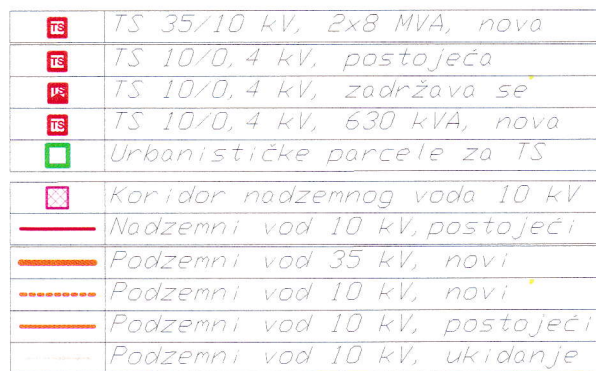 TS TS 35/10 kV, 2x8 MVA, nova
TS TS 10/0,4 kV, postojeća
TS 10/0,4 kV, zadržava se
TS TS 10/0,4 kV, 630 kVA, nova
Urbanističke parcele za TS
Koridor nadzemnog voda 10 kV
Nadzemni vod 10 kV, postojeći
Podzemni vod 35 kV, novi
Podzemni vod 10 kV, novi
Podzemni vod 10 kV, postojeći
Podzemni vod 10 kV, ukidanje